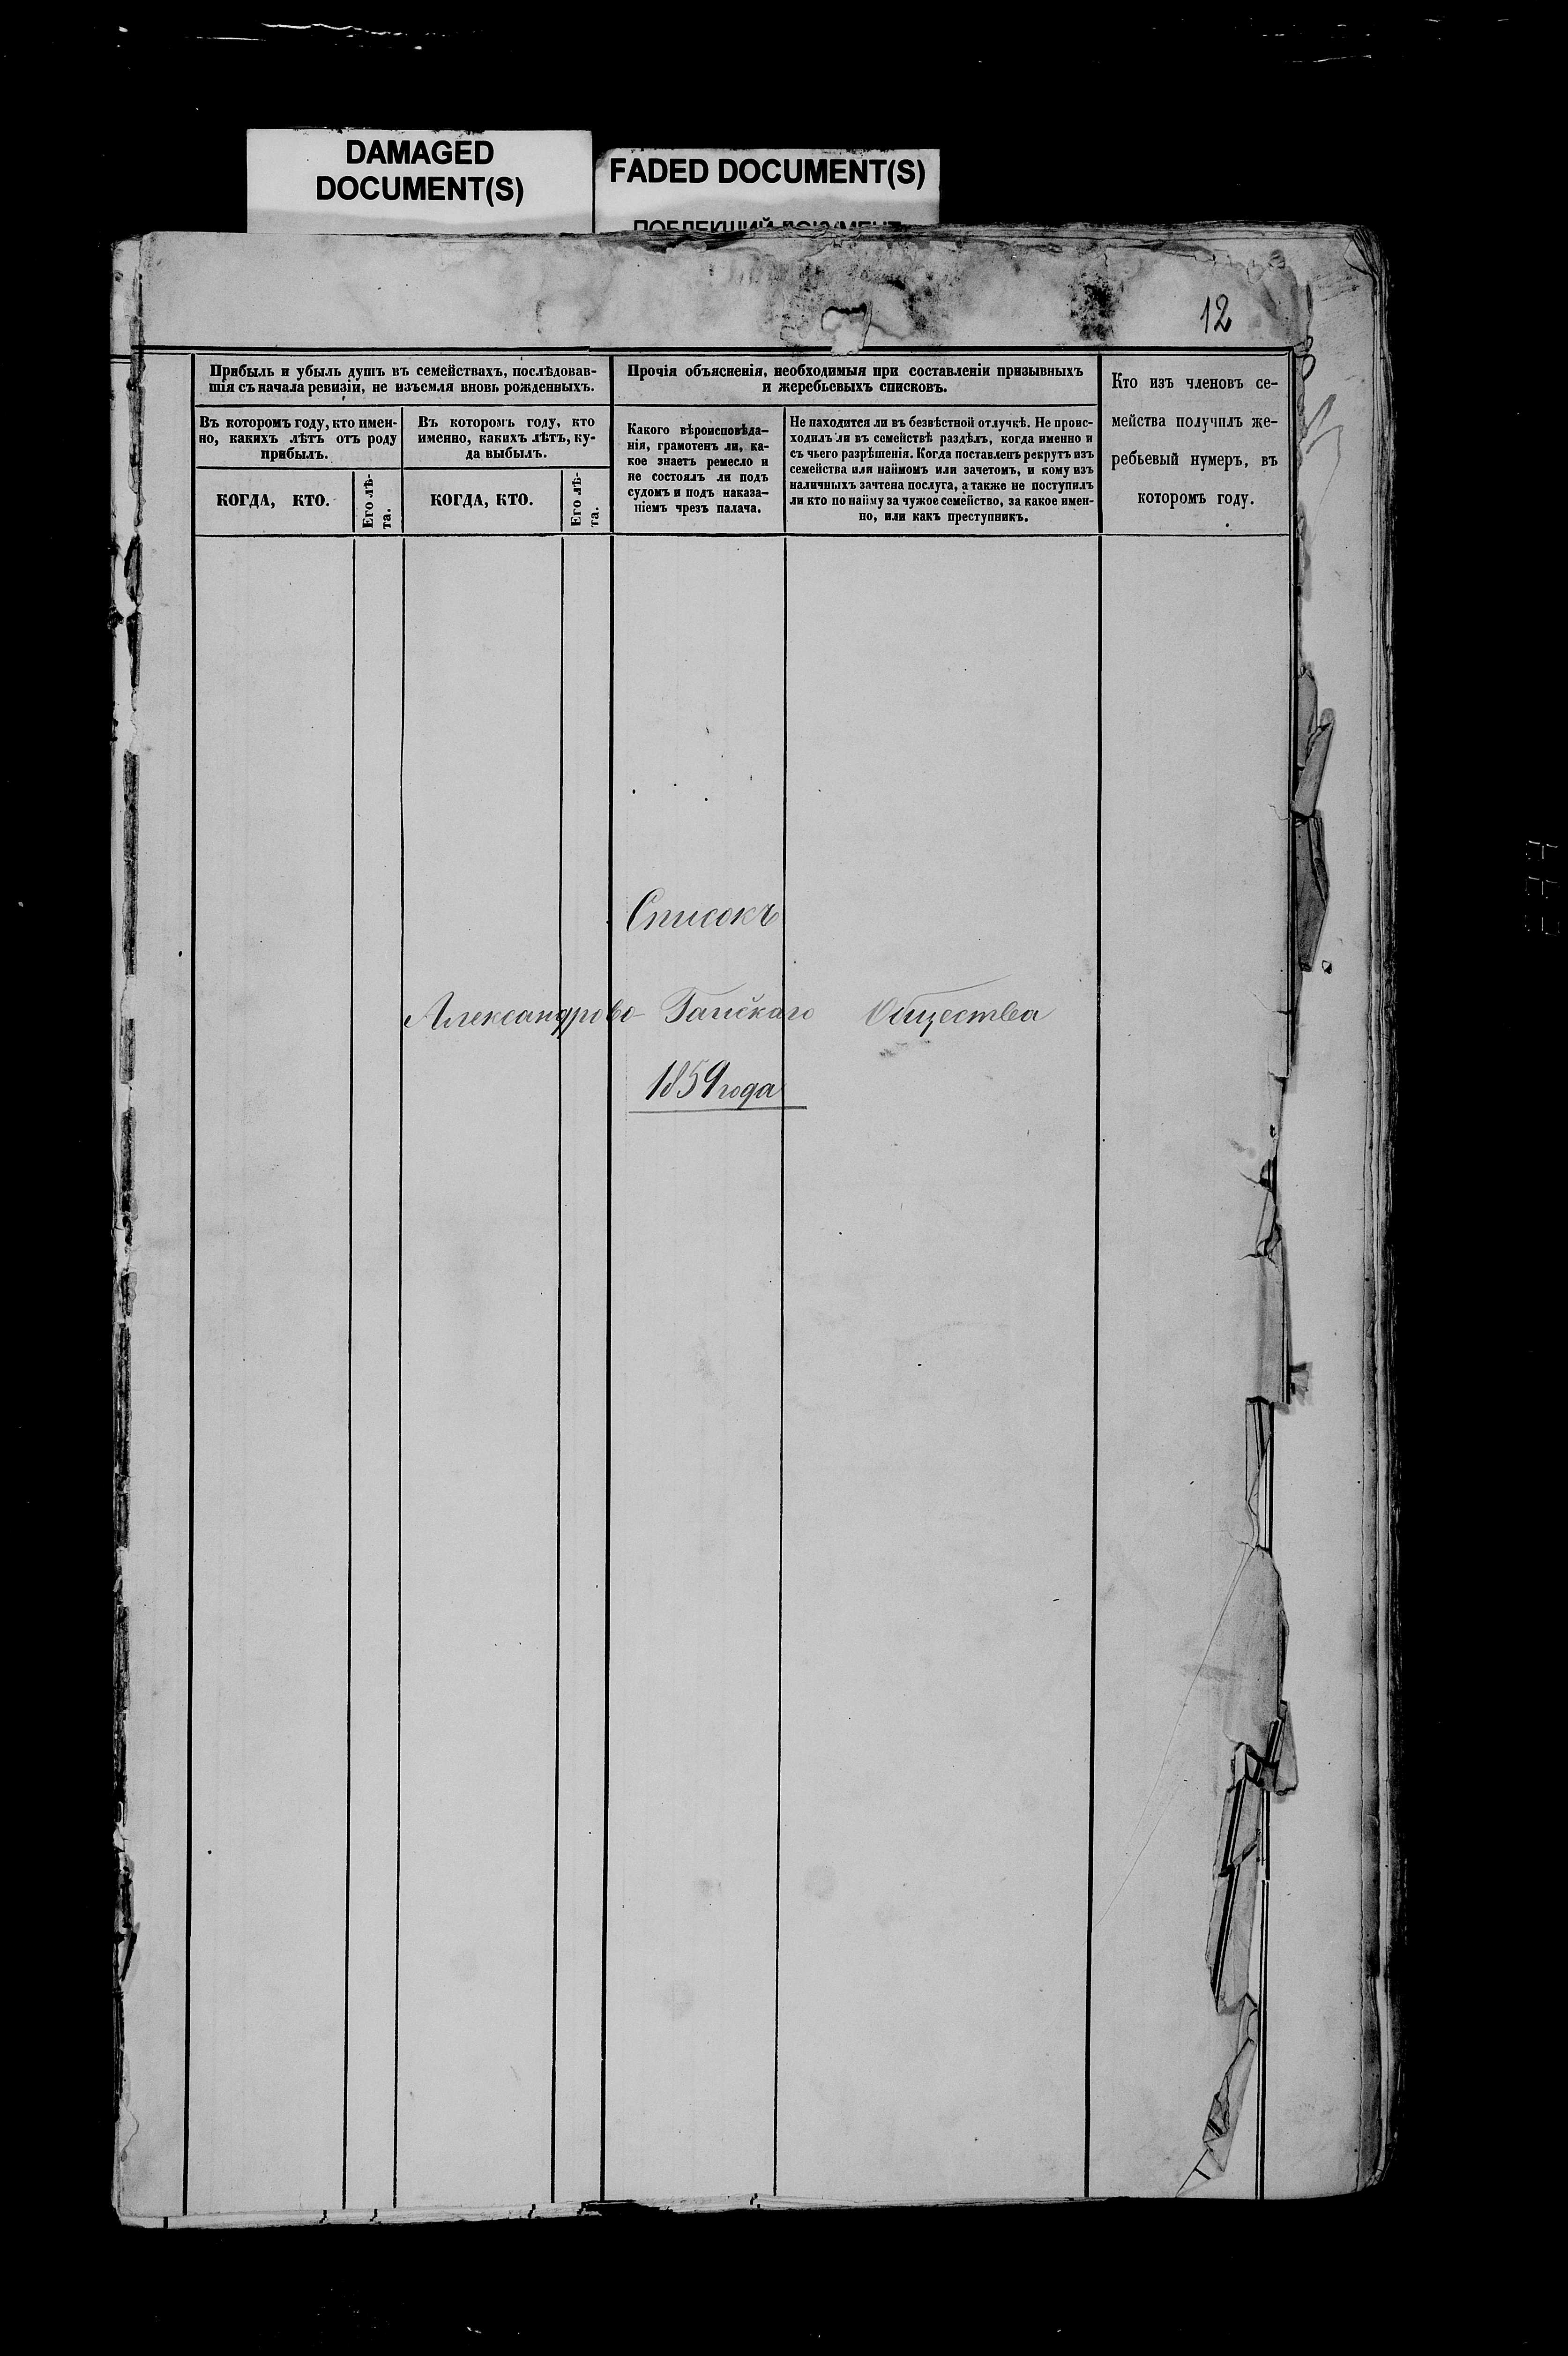 DAMAGED
DOCUMENT(S)
FADED DOCUMENT(S)
12
Прибыль и убыль душъ въ семействахъ, послѣдовав-
шія съ начала ревизіи, не изъемля вновь рожденныхъ.
Въ которомъ году, кто имен-
но, какихъ лѣтъ отъ роду
прибылъ.
КОГДА, КТО.
Его лѣ-
та.
Въ которомъ году, кто
именно, какихъ лѣтъ, ку-
да выбылъ.
КОГДА, КТО.
Его лѣ-
та.
Прочія объясненія, необходимыя при составленіи призывныхъ
и жеребьевыхъ списковъ.
Какого вѣроисповѣда-
нія, грамотенъ ли, ка-
кое знаетъ ремесло и
не состоялъ ли подъ
судомъ и подъ наказа-
ніемъ чрезъ палача.
Не находится ли въ безвѣстной отлучкѣ. Не проис-
ходилъ ли въ семействѣ раздѣлъ, когда именно и
съ чьего разрѣшенія. Когда поставленъ рекрутъ изъ
семейства или наймомъ или зачетомъ, и кому изъ
наличныхъ зачтена послуга, а также не поступилъ
ли кто по найму за чужое семейство, за какое имен-
но, или какъ преступникъ.
Кто изъ членовъ се-
мейства получилъ же-
ребьевый нумеръ, въ
которомъ году.
Списокъ
Александрово-Гайскаго Общества
1859 года